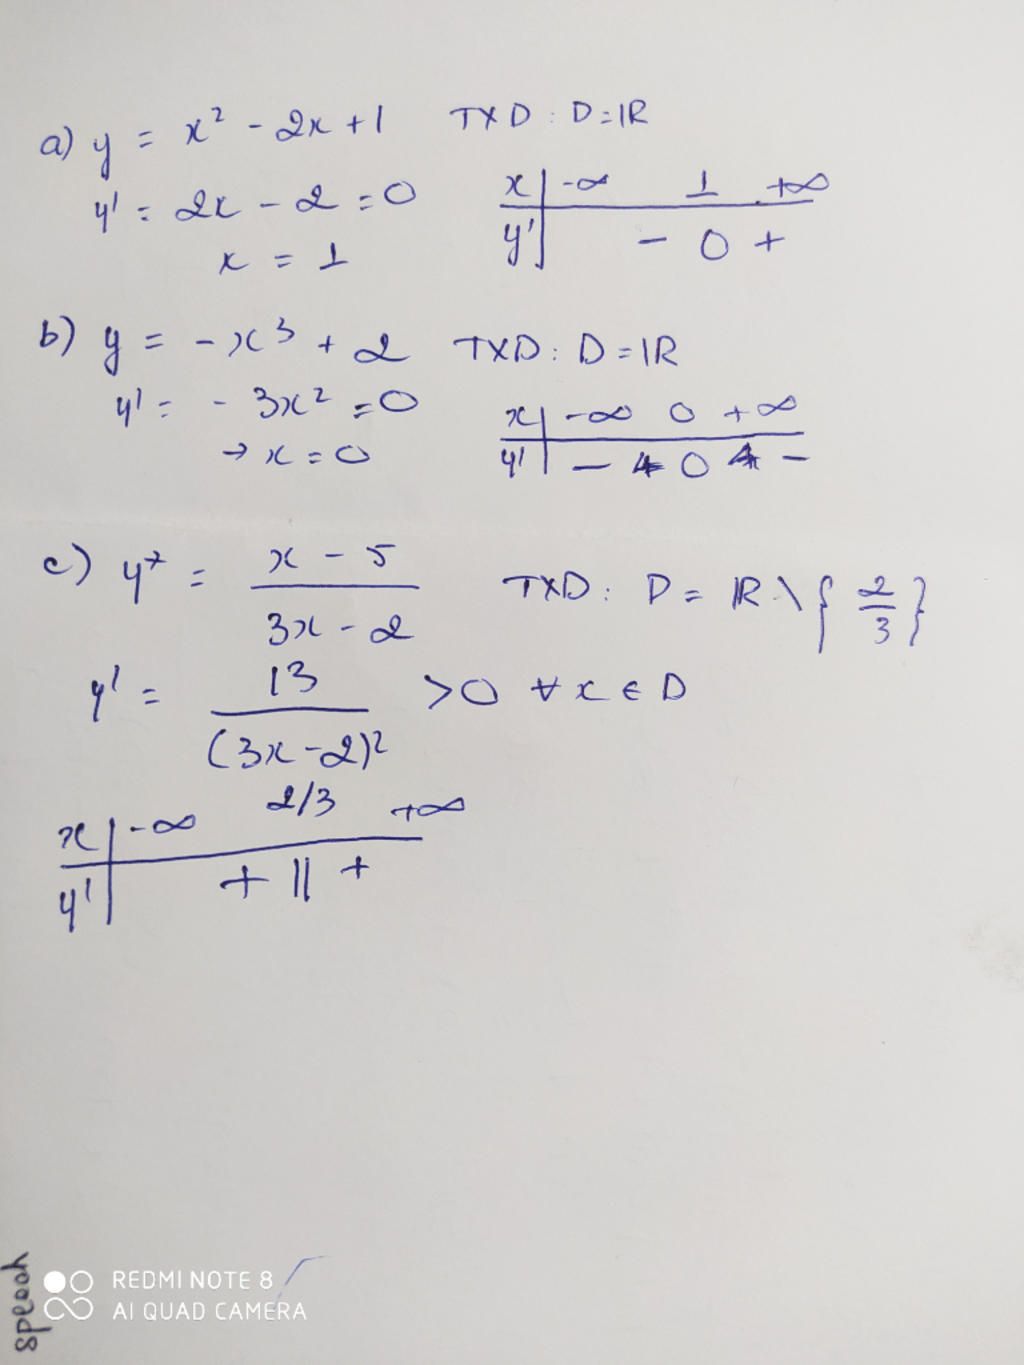 a) y = x² - 2x + 1 TXD : D = ℝ
y' = 2x - 2 = 0
x = 1
x | -∞ 1 +∞
y' | - 0 +
b) y = -x³ + 2 TXD : D = ℝ
y' = -3x² = 0
→ x = 0
x | -∞ 0 +∞
y' | - 0 -
c) y = x - 5 / 3x - 2 TXD : D = ℝ \ { 2/3 }
y' = 13 / (3x - 2)² > 0 ∀ x ∈ D
x | -∞ 2/3 +∞
y' | + || +
REDMI NOTE 8
AI QUAD CAMERA